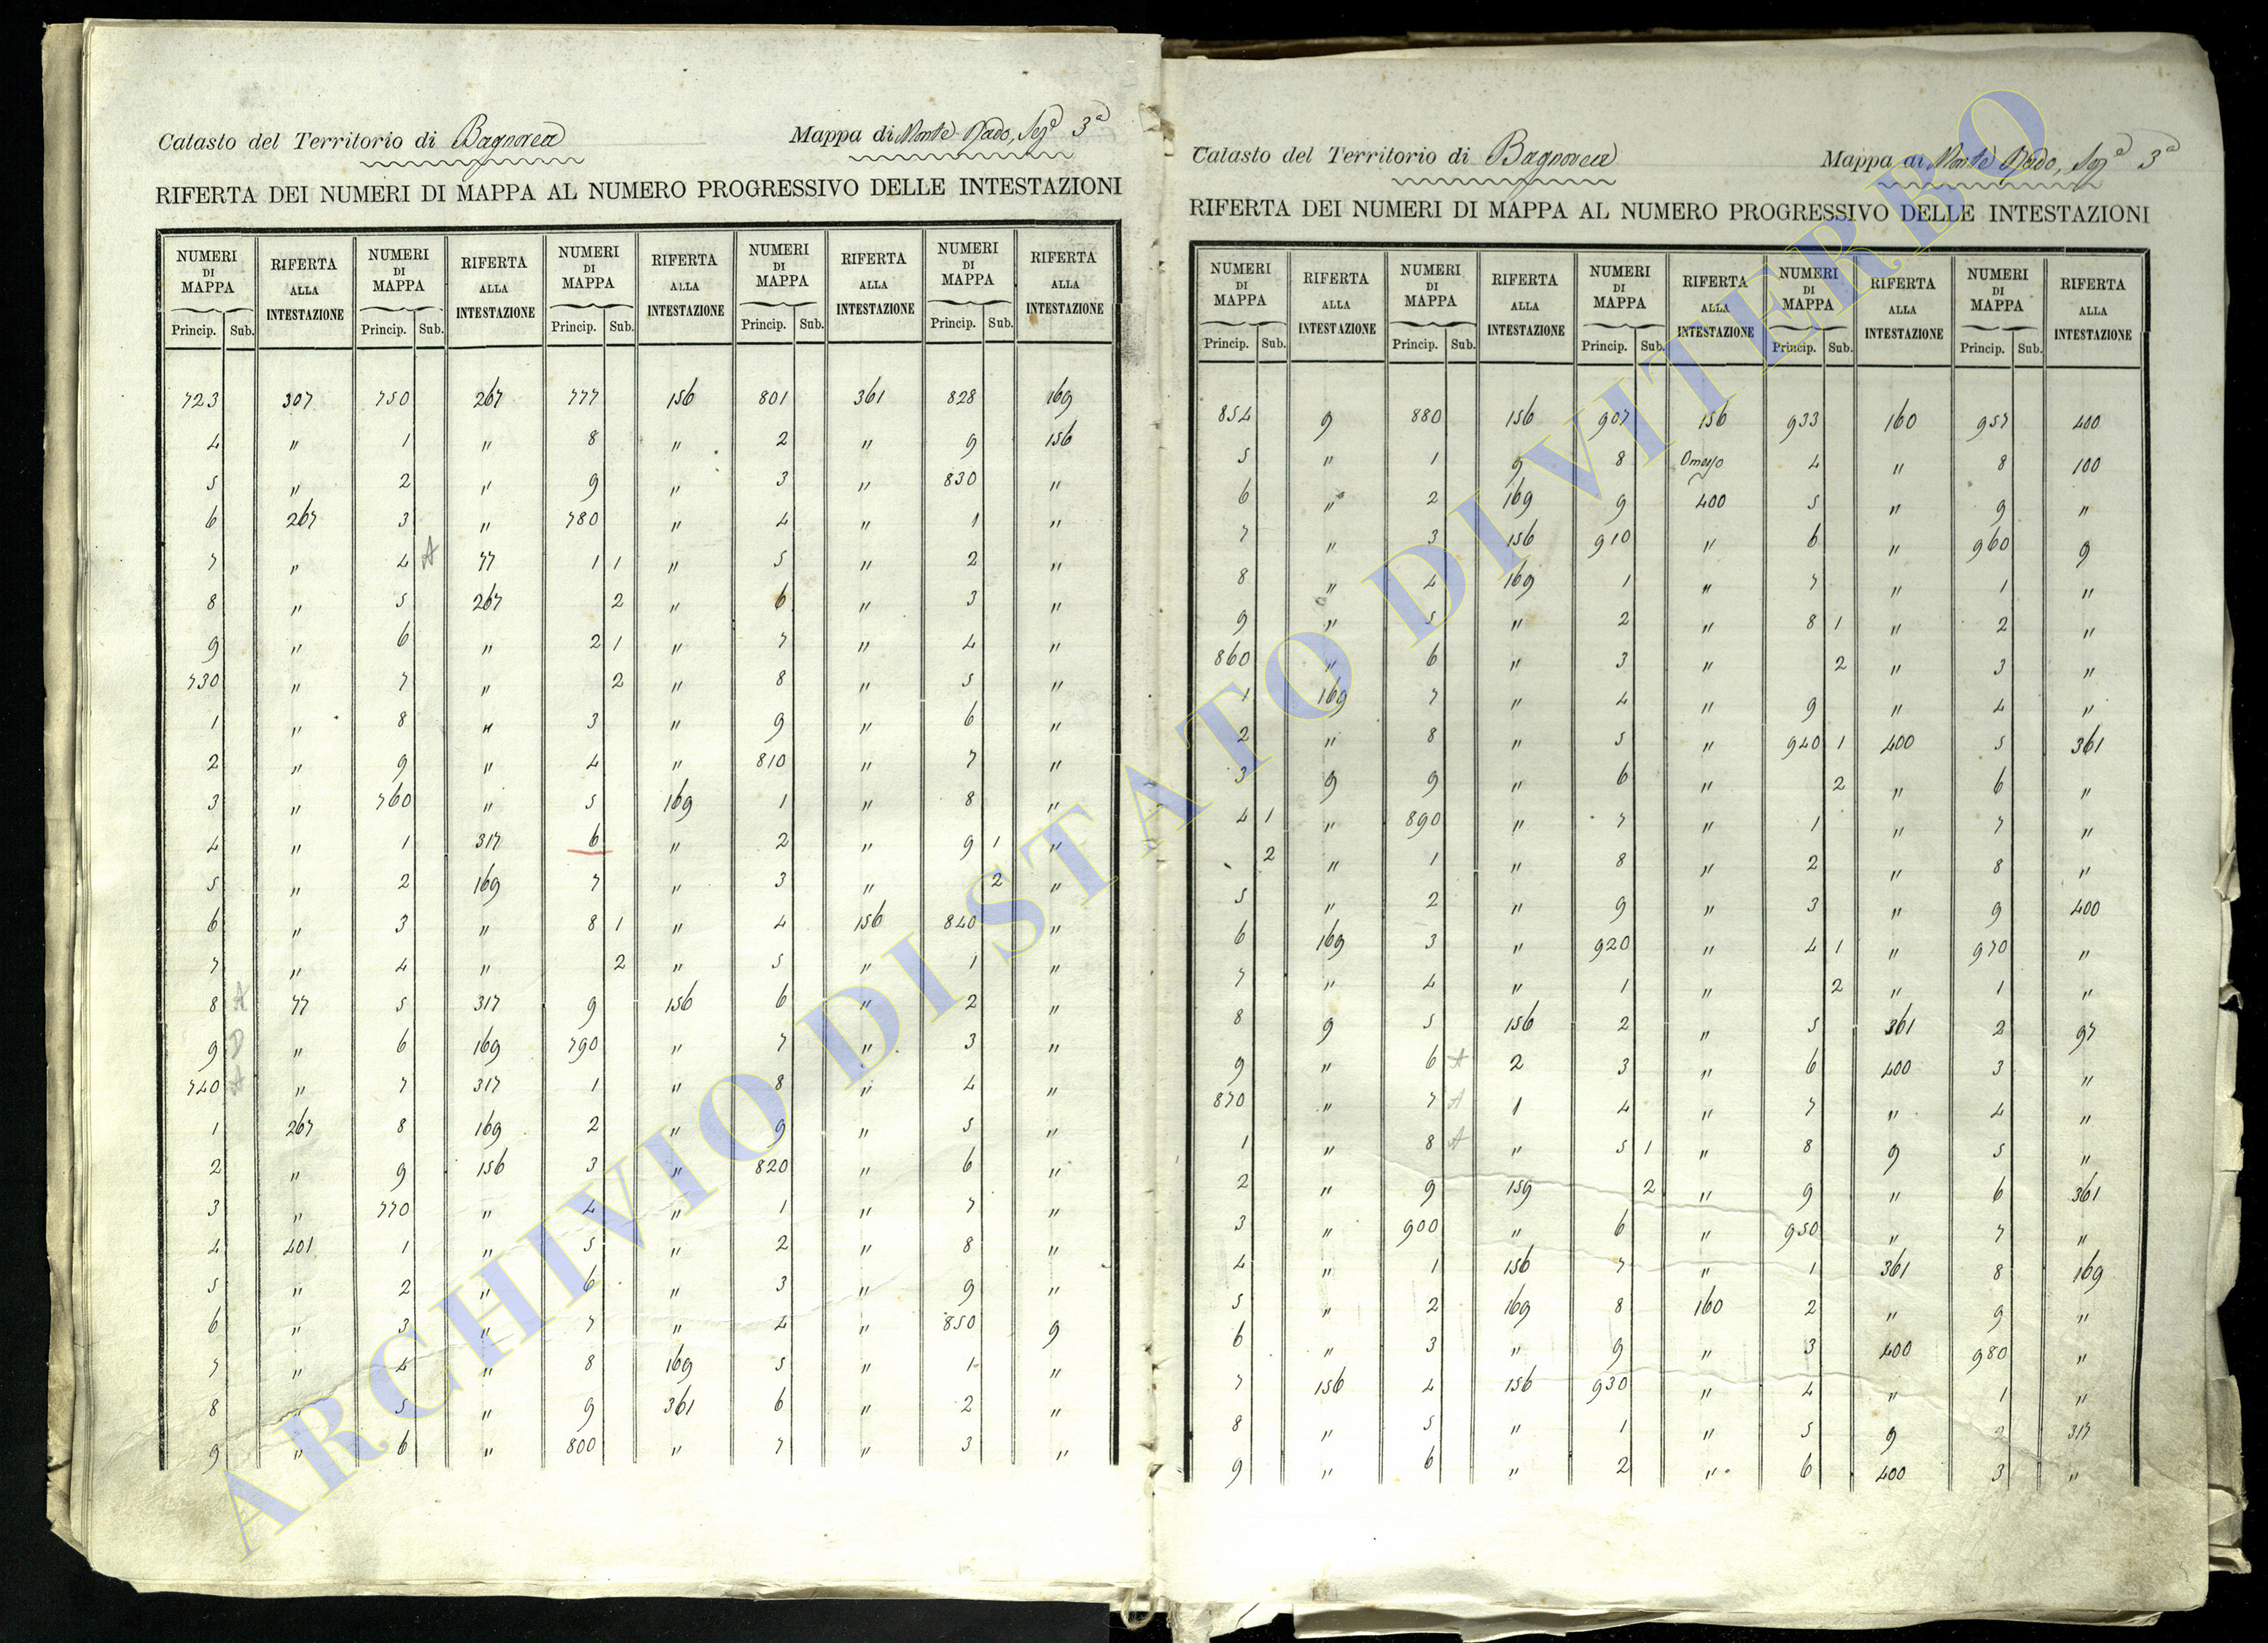 Catasto del Territorio di Bagnorea Mappa di Monte Rado, Sez.ª 3ª
RIFERTA DEI NUMERI DI MAPPA AL NUMERO PROGRESSIVO DELLE INTESTAZIONI
NUMERI DI MAPPA RIFERTA ALLA INTESTAZIONE NUMERI DI MAPPA RIFERTA ALLA INTESTAZIONE NUMERI DI MAPPA RIFERTA ALLA INTESTAZIONE NUMERI DI MAPPA RIFERTA ALLA INTESTAZIONE NUMERI DI MAPPA RIFERTA ALLA INTESTAZIONE
Princip. Sub. Princip. Sub. Princip. Sub. Princip. Sub. Princip. Sub.
723 307 750 267 777 156 801 361 828 169
4 " 1 " 8 " 2 " 9 156
5 " 2 " 9 " 3 " 830 "
6 267 3 " 780 " 4 " 1 "
7 " 4 A 77 1 1 " 5 " 2 "
8 " 5 267 2 " 6 " 3 "
9 " 6 " 2 1 " 7 " 4 "
730 " 7 " 2 " 8 " 5 "
1 " 8 " 3 " 9 " 6 "
2 " 9 " 4 " 810 " 7 "
3 " 760 " 5 169 1 " 8 "
4 " 1 317 6 " 2 " 9 1 "
5 " 2 169 7 " 3 " 2 "
6 " 3 " 8 1 " 4 156 840 "
7 " 4 " 2 " 5 " 1 "
8 A 77 5 317 9 156 6 " 2 "
9 D " 6 169 790 " 7 " 3 "
740 A " 7 317 1 " 8 " 4 "
1 267 8 169 2 " 9 " 5 "
2 " 9 156 3 " 820 " 6 "
3 " 770 " 4 " 1 " 7 "
4 401 1 " 5 " 2 " 8 "
5 " 2 " 6 " 3 " 9 "
6 " 3 " 7 " 4 " 850 9
7 " 4 " 8 169 5 " 1 "
8 " 5 " 9 361 6 " 2 "
9 " 6 " 800 " 7 " 3 "
Catasto del Territorio di Bagnorea Mappa di Monte Rado, Sez.ª 3ª
RIFERTA DEI NUMERI DI MAPPA AL NUMERO PROGRESSIVO DELLE INTESTAZIONI
NUMERI DI MAPPA RIFERTA ALLA INTESTAZIONE NUMERI DI MAPPA RIFERTA ALLA INTESTAZIONE NUMERI DI MAPPA RIFERTA ALLA INTESTAZIONE NUMERI DI MAPPA RIFERTA ALLA INTESTAZIONE NUMERI DI MAPPA RIFERTA ALLA INTESTAZIONE
Princip. Sub. Princip. Sub. Princip. Sub. Princip. Sub. Princip. Sub.
854 9 880 156 907 156 933 160 957 400
5 " 1 9 8 Omesso 4 " 8 100
6 " 2 169 9 400 5 " 9 "
7 " 3 156 910 " 6 " 960 9
8 " 4 169 1 " 7 " 1 "
9 " 5 " 2 " 8 1 " 2 "
860 " 6 " 3 " 2 " 3 "
1 169 7 " 4 " 9 " 4 "
2 " 8 " 5 " 940 1 400 5 361
3 9 9 " 6 " 2 " 6 "
4 1 " 890 " 7 " 1 " 7 "
2 " 1 " 8 " 2 " 8 "
5 " 2 " 9 " 3 " 9 400
6 169 3 " 920 " 4 1 " 970 "
7 " 4 " 1 " 2 " 1 "
8 9 5 156 2 " 5 361 2 97
9 " 6 A 2 3 " 6 400 3 "
870 " 7 A 1 4 " 7 " 4 "
1 " 8 A " 5 1 " 8 9 5 "
2 " 9 159 2 " 9 " 6 361
3 " 900 " 6 " 950 " 7 "
4 " 1 156 7 " 1 361 8 169
5 " 2 169 8 160 2 " 9 "
6 " 3 " 9 " 3 400 980 "
7 156 4 156 930 " 4 " 1 "
8 " 5 " 1 " 5 9 2 317
9 " 6 " 2 " 6 400 3 "
ARCHIVIO DI STATO DI VITERBO